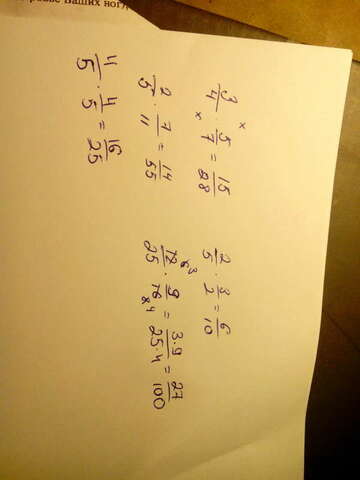 Ваших
3/4 · 5/7 = 15/28
x x
2/5 · 7/11 = 14/55
4/5 · 4/5 = 16/25
2/5 · 3/2 = 6/10
6 3
12/25 · 9/16 = 3·9/25·4 = 27/100
8 4